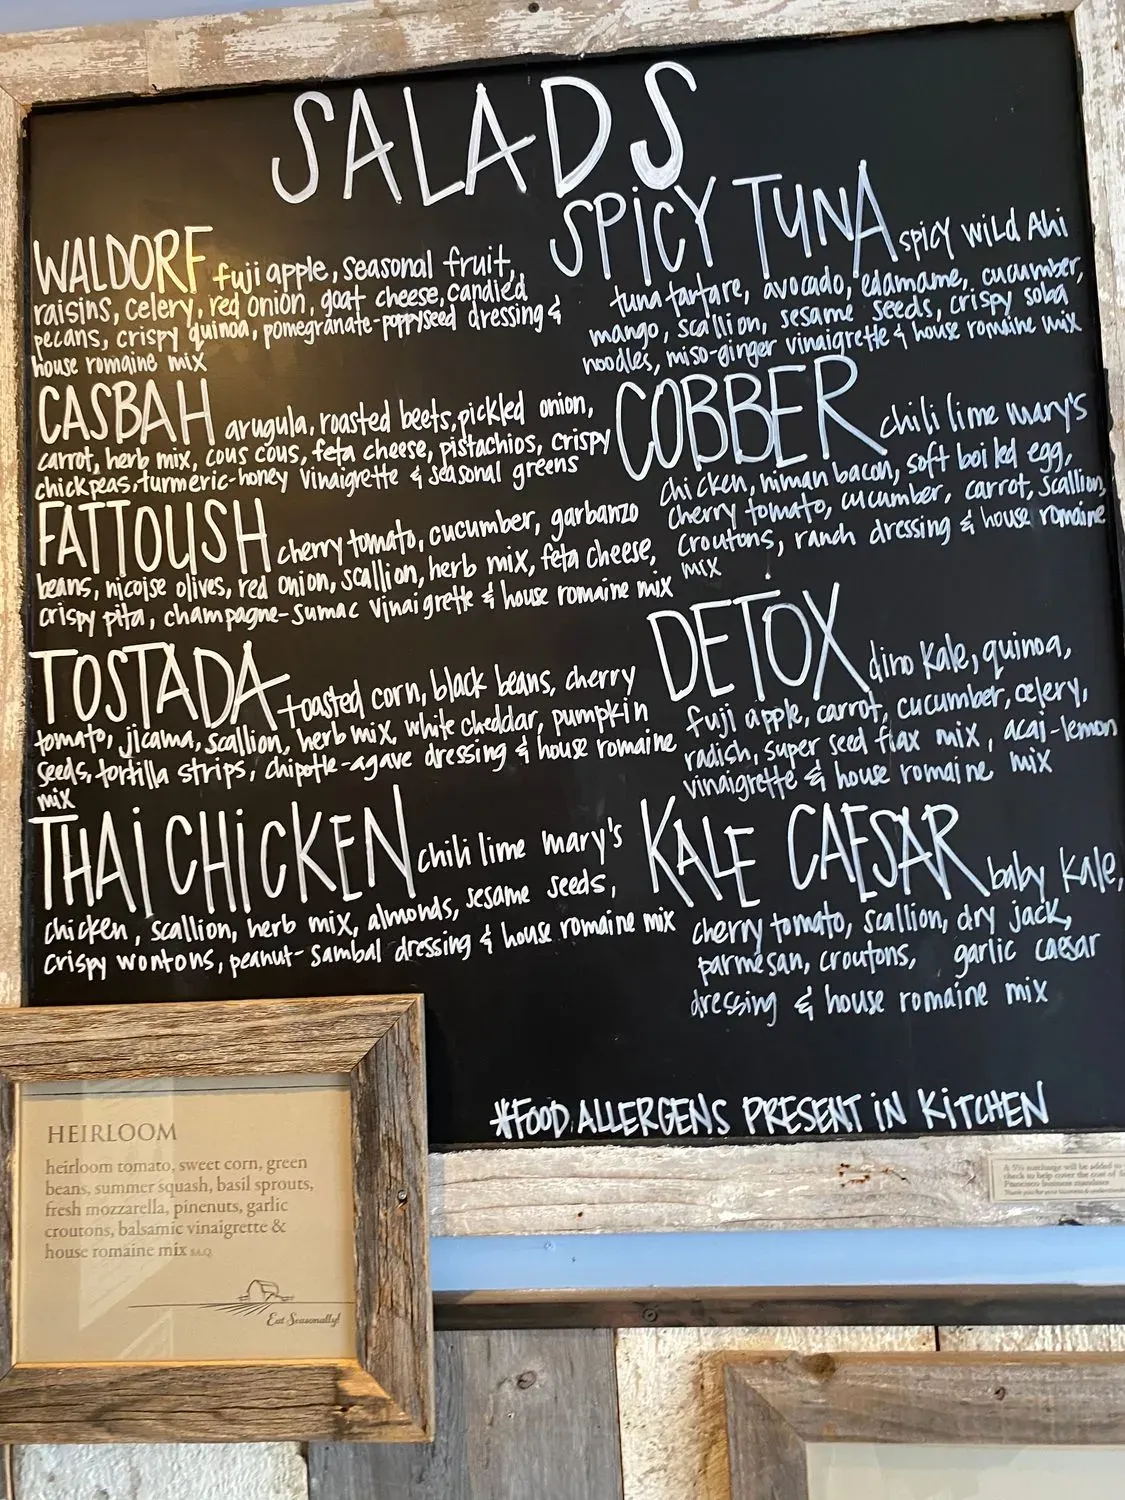 SALADS
WALDORF fuji apple, seasonal fruit,
raisins, celery, red onion, goat cheese, candied
pecans, crispy quinoa, pomegranate-poppyseed dressing &
house romaine mix
CASBAH arugula, roasted beets, pickled onion,
carrot, herb mix, cous cous, feta cheese, pistachios, crispy
chickpeas, turmeric-honey vinaigrette & seasonal greens
FATTOUSH cherry tomato, cucumber, garbanzo
beans, nicoise olives, red onion, scallion, herb mix, feta cheese,
crispy pita, champagne-sumac vinaigrette & house romaine mix
TOSTADA toasted corn, black beans, cherry
tomato, jicama, scallion, herb mix, white cheddar, pumpkin
seeds, tortilla strips, chipotle-agave dressing & house romaine
mix
THAI CHICKEN chili lime mary's
chicken, scallion, herb mix, almonds, sesame seeds,
crispy wontons, peanut-sambal dressing & house romaine mix
SPICY TUNA spicy wild Ahi
tuna tartare, avocado, edamame, cucumber,
mango, scallion, sesame seeds, crispy soba
noodles, miso-ginger vinaigrette & house romaine mix
COBBER chili lime mary's
chicken, niman bacon, soft boiled egg,
cherry tomato, cucumber, carrot, scallion,
croutons, ranch dressing & house romaine
mix
DETOX dino kale, quinoa,
fuji apple, carrot, cucumber, celery,
radish, super seed flax mix, acai-lemon
vinaigrette & house romaine mix
KALE CAESAR baby kale,
cherry tomato, scallion, dry jack,
parmesan, croutons, garlic caesar
dressing & house romaine mix
*FOOD ALLERGENS PRESENT IN KITCHEN
HEIRLOOM
heirloom tomato, sweet corn, green
beans, summer squash, basil sprouts,
fresh mozzarella, pinenuts, garlic
croutons, balsamic vinaigrette &
house romaine mix
Eat Seasonally!
A 5% surcharge will be added to
check to help cover the cost of
Francisco business mandates
Thank you for your business &